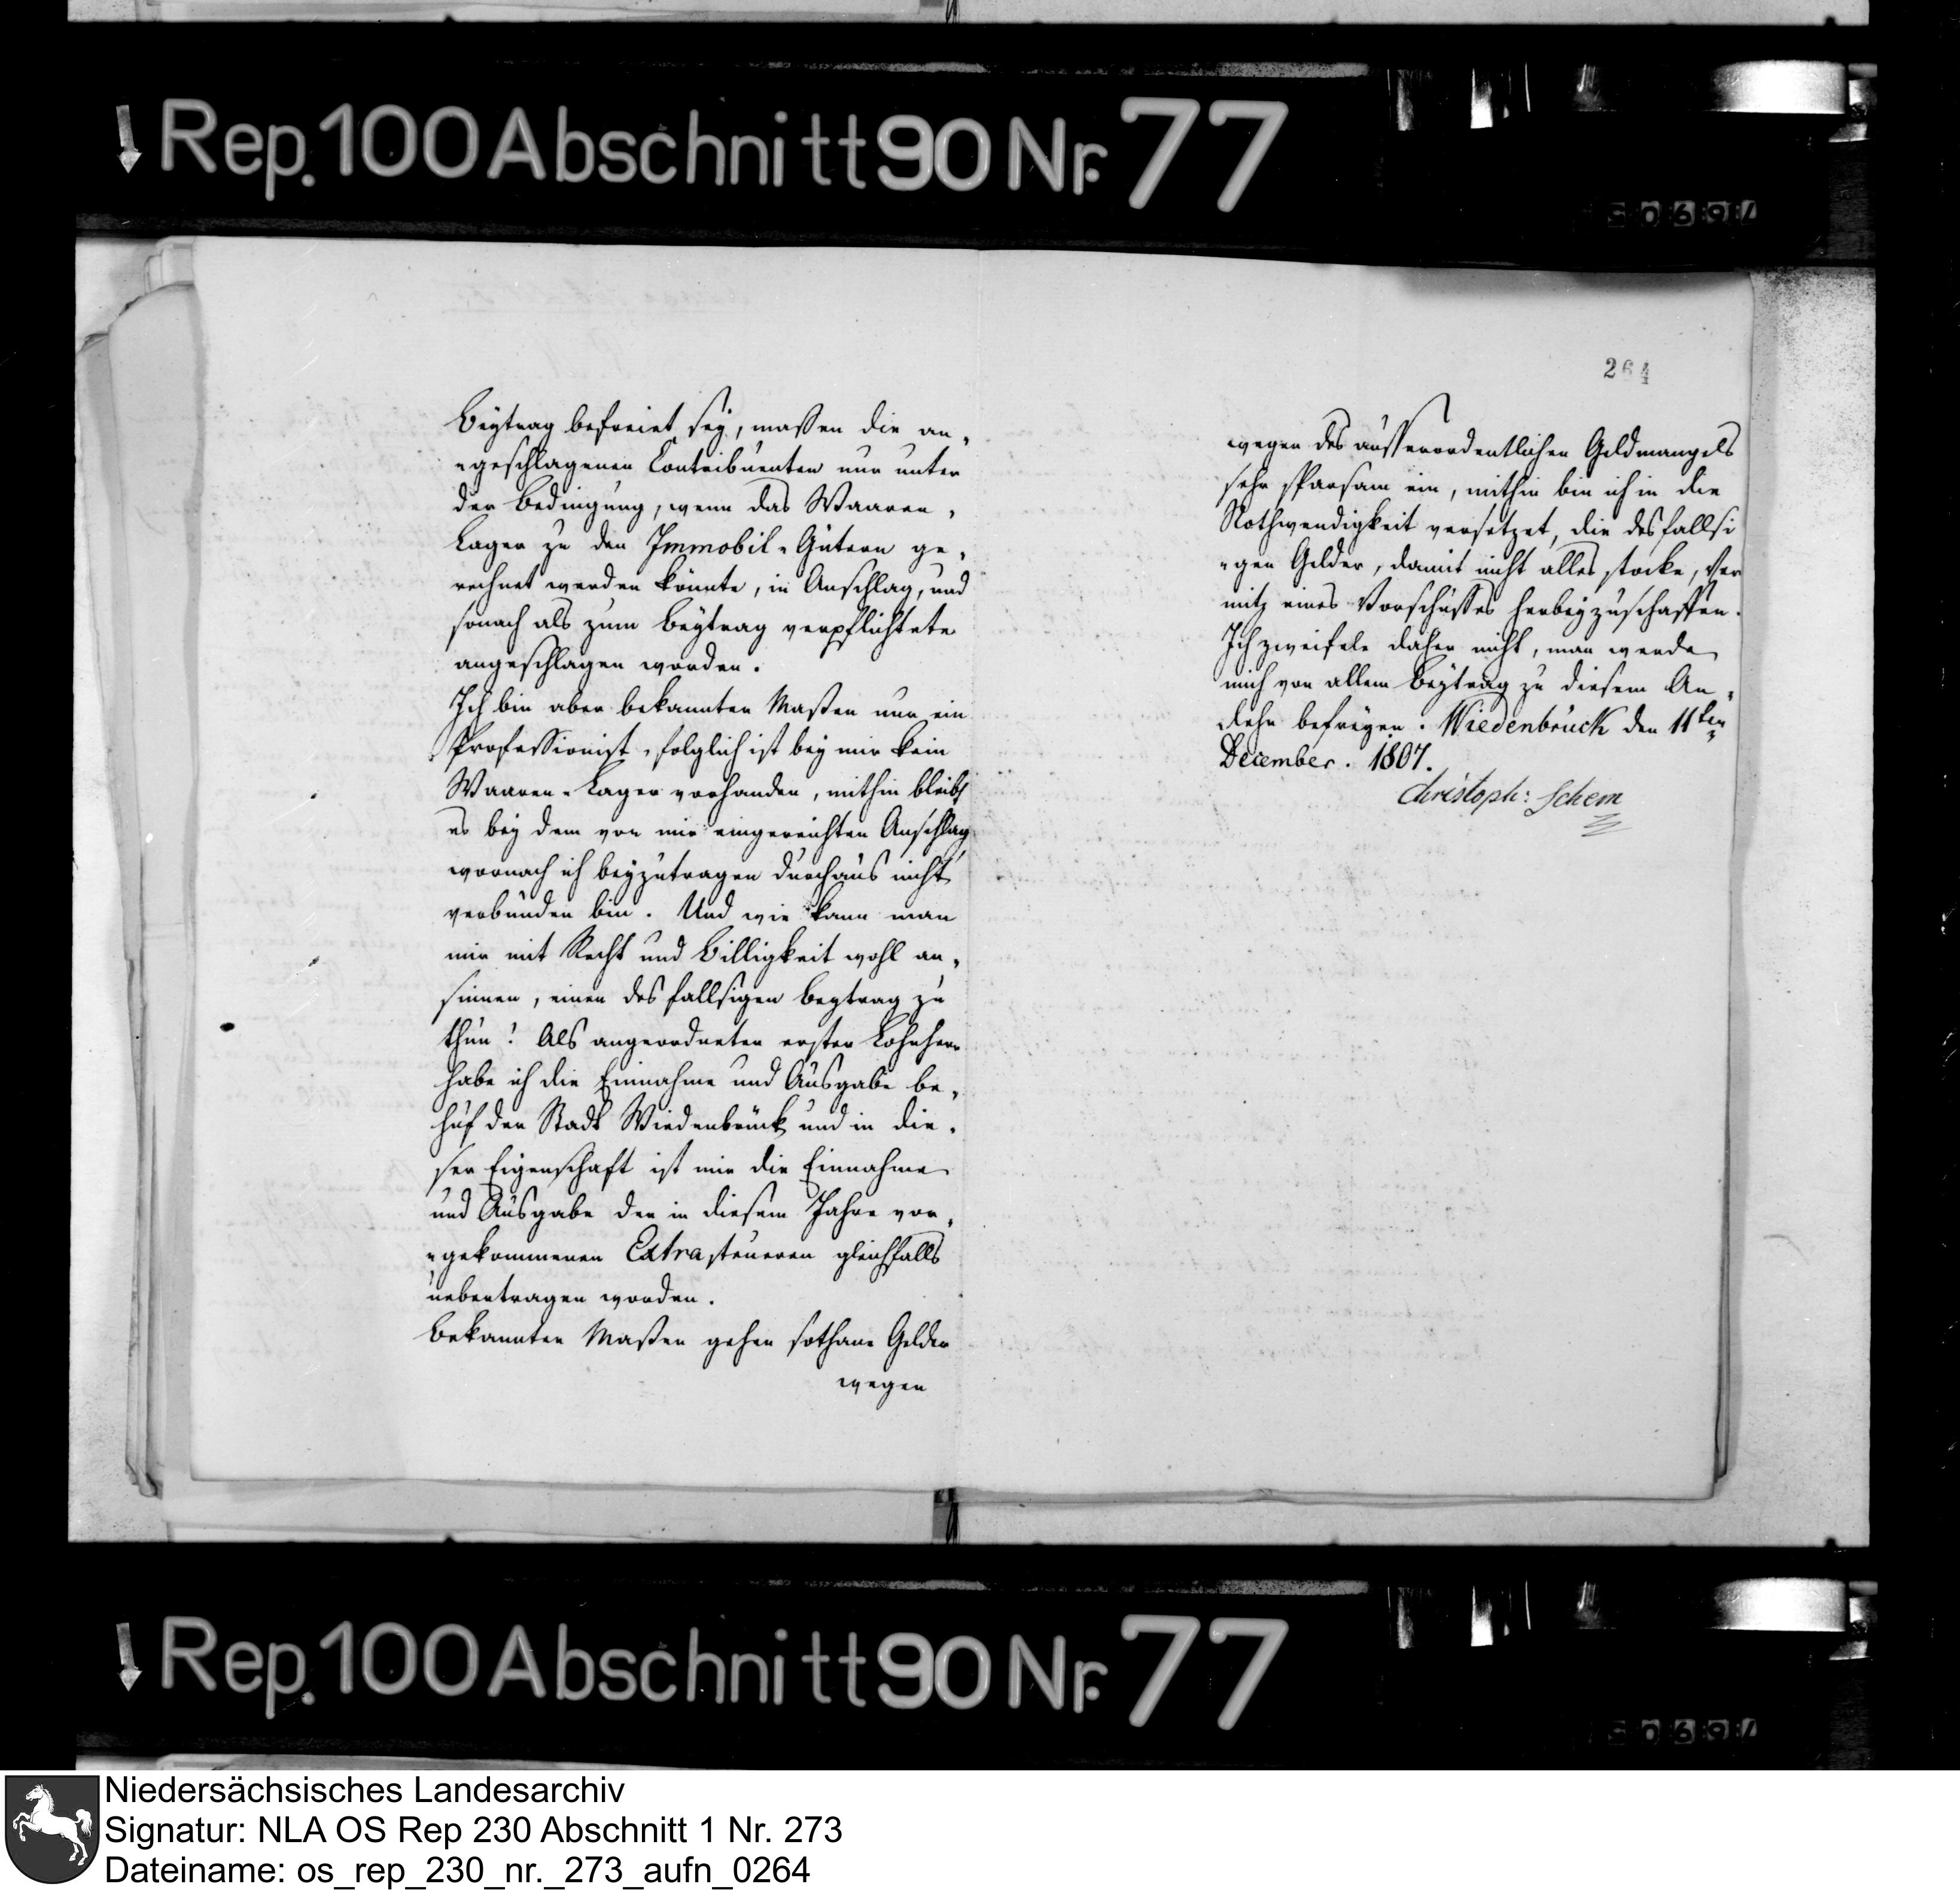 Rep. 100 Abschnitt 90 Nr. 77
264
Beÿtrag befreiet seÿ, maßen die an„
„geschlagenen Contribuenten nur unter
der Bedingung, wenn das Waaren„
Lager zu den Immobil-Gütern ge„
rechnet werden könnte, in Anschlag, und
sonach als zum Beÿtrag verpflichtete
angeschlagen worden.
Ich bin aber bekannter Maßen nur ein
Professionist, folglich ist beÿ mir kein
Waaren-Lager vorhanden, mithin bleibt
es beÿ dem von mir eingereichten Anschlag
wornach ich beÿzutragen durchaus nicht
verbunden bin. Und wie kann man
mir mit Recht und Billigkeit wohl an„
sinnen, einen desfallsigen Beytrag zu
thun! Als angeordneter erster Lohnherr
habe ich die Einnahme und Ausgabe be„
huf der Stadt Wiedenbrück und in die„
ser Eigenschaft ist mir die Einnahme
und Ausgabe der in diesem Jahre vor„
„gekommenen Extrasteueren gleichfalls
uebertragen worden.
Bekannter Maßen gehen sothane Gelder
wegen
wegen des ausserordentlichen Geldmangels
sehr sparsam ein, mithin bin ich in die
Nothwendigkeit versetzet, die desfallsi
„gen Gelder, damit nicht alles stocke, ver
mitz eines Vorschußes herbeÿzuschaffen.
Ich zweifele daher nicht, man werde
mich von allem Beÿtrag zu diesem An„
lehn befreÿen. Wiedenbrück den 11ten
December. 1807.
Christoph: Schem
Rep. 100 Abschnitt 90 Nr. 77
Niedersächsisches Landesarchiv
Signatur: NLA OS Rep 230 Abschnitt 1 Nr. 273
Dateiname: os_rep_230_nr._273_aufn_0264